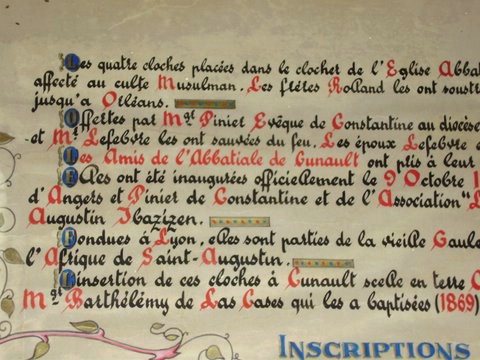 Les quatre cloches placées dans le clocher de l'Eglise Abba
affecté au culte Musulman. Les frères Rolland les ont soust
jusqu'a Orléans.
Offertes par Mgr Pinier Evêque de Constantine au diocèse
et Mr Lefebvre les ont sauvées du feu. Les époux Lefebvre e
Les Amis de l'Abbatiale de Cunault ont pris à leur
Elles ont été inaugurées officiellement le 9 Octobre 1
d'Angers et Pinier de Constantine et de l'Association "L
Augustin Ibazizen.
Fondues à Lyon, elles sont parties de la vieille Gaule
l'Afrique de Saint-Augustin.
L'insertion de ces cloches à Cunault scelle en terre
Mgr Barthélémy de Las Cases qui les a baptisées (1869)
INSCRIPTIONS